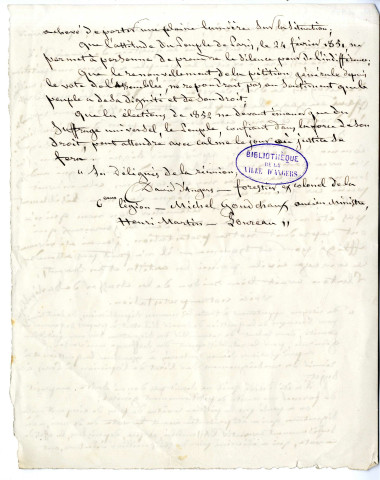 achevé de porter une pleine lumière sur la situation,
Que l'attitude du Peuple de Paris, le 24 février 1851, ne
permet à personne de prendre le silence pour de l'indifférence.
Que le renouvellement de la pétition générale depuis
le vote de l'Assemblée, ne repondrait pas au sentiment que le
peuple a de sa dignité et de son droit,
Que les élections de 1852 ne devant émaner que du
Suffrage universel le Peuple, confiant dans la force de son
droit, peut attendre avec calme le jour où justice se
fera.
"Les délégués de la réunion,
David d'Angers — forestier, ex colonel de la
6eme légion — Michel Goudchaux ancien Ministre,
Henri-Martin —
BIBLIOTHÈQUE
DE LA
VILLE D'ANGERS